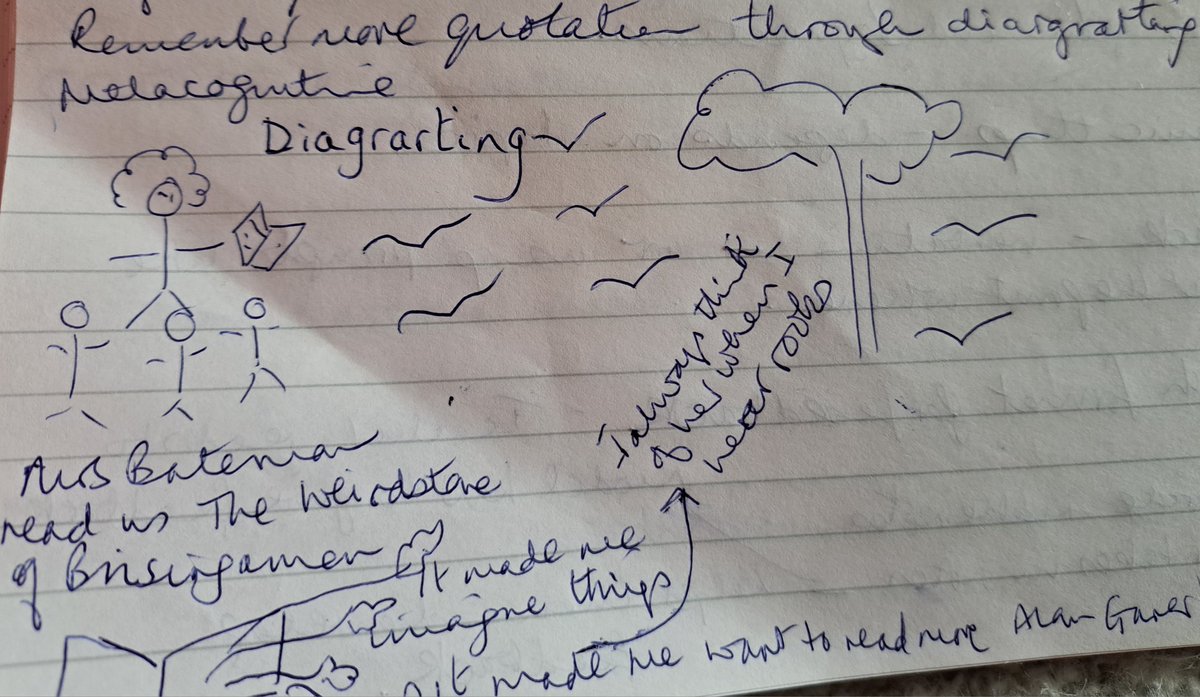 Remember more quotation through diagrarting
Metacognitive
Diagrarting
I always think
of her when I
hear rooks
Mrs Bateman
read us The Weirdstone
of Brisingamen
It made me
imagine things
it made me want to read more Alan Garner